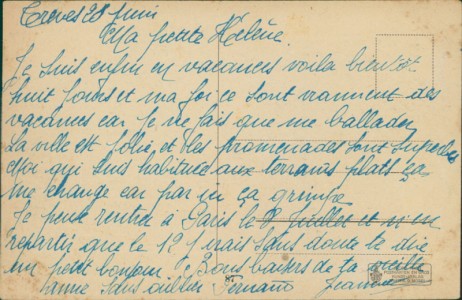 Treves 28 juin
Ma petite Hélène.
Je suis enfin en vacances voila bientôt
huit jours et ma foi ce sont vraiment des
vacances car je ne fais que me ballader
La ville est jolie, et les promenades sont superbes
Moi qui suis habituée aux terrains plats ça
me change car par ici ça grimpe
Je pense rentrer à Paris le 8 Juillet et n'en
repartir que le 12 j'irais sans doute te dire
un petit bonjour. Bons baisers de ta vieille
sans oublier Fernand Jeanne